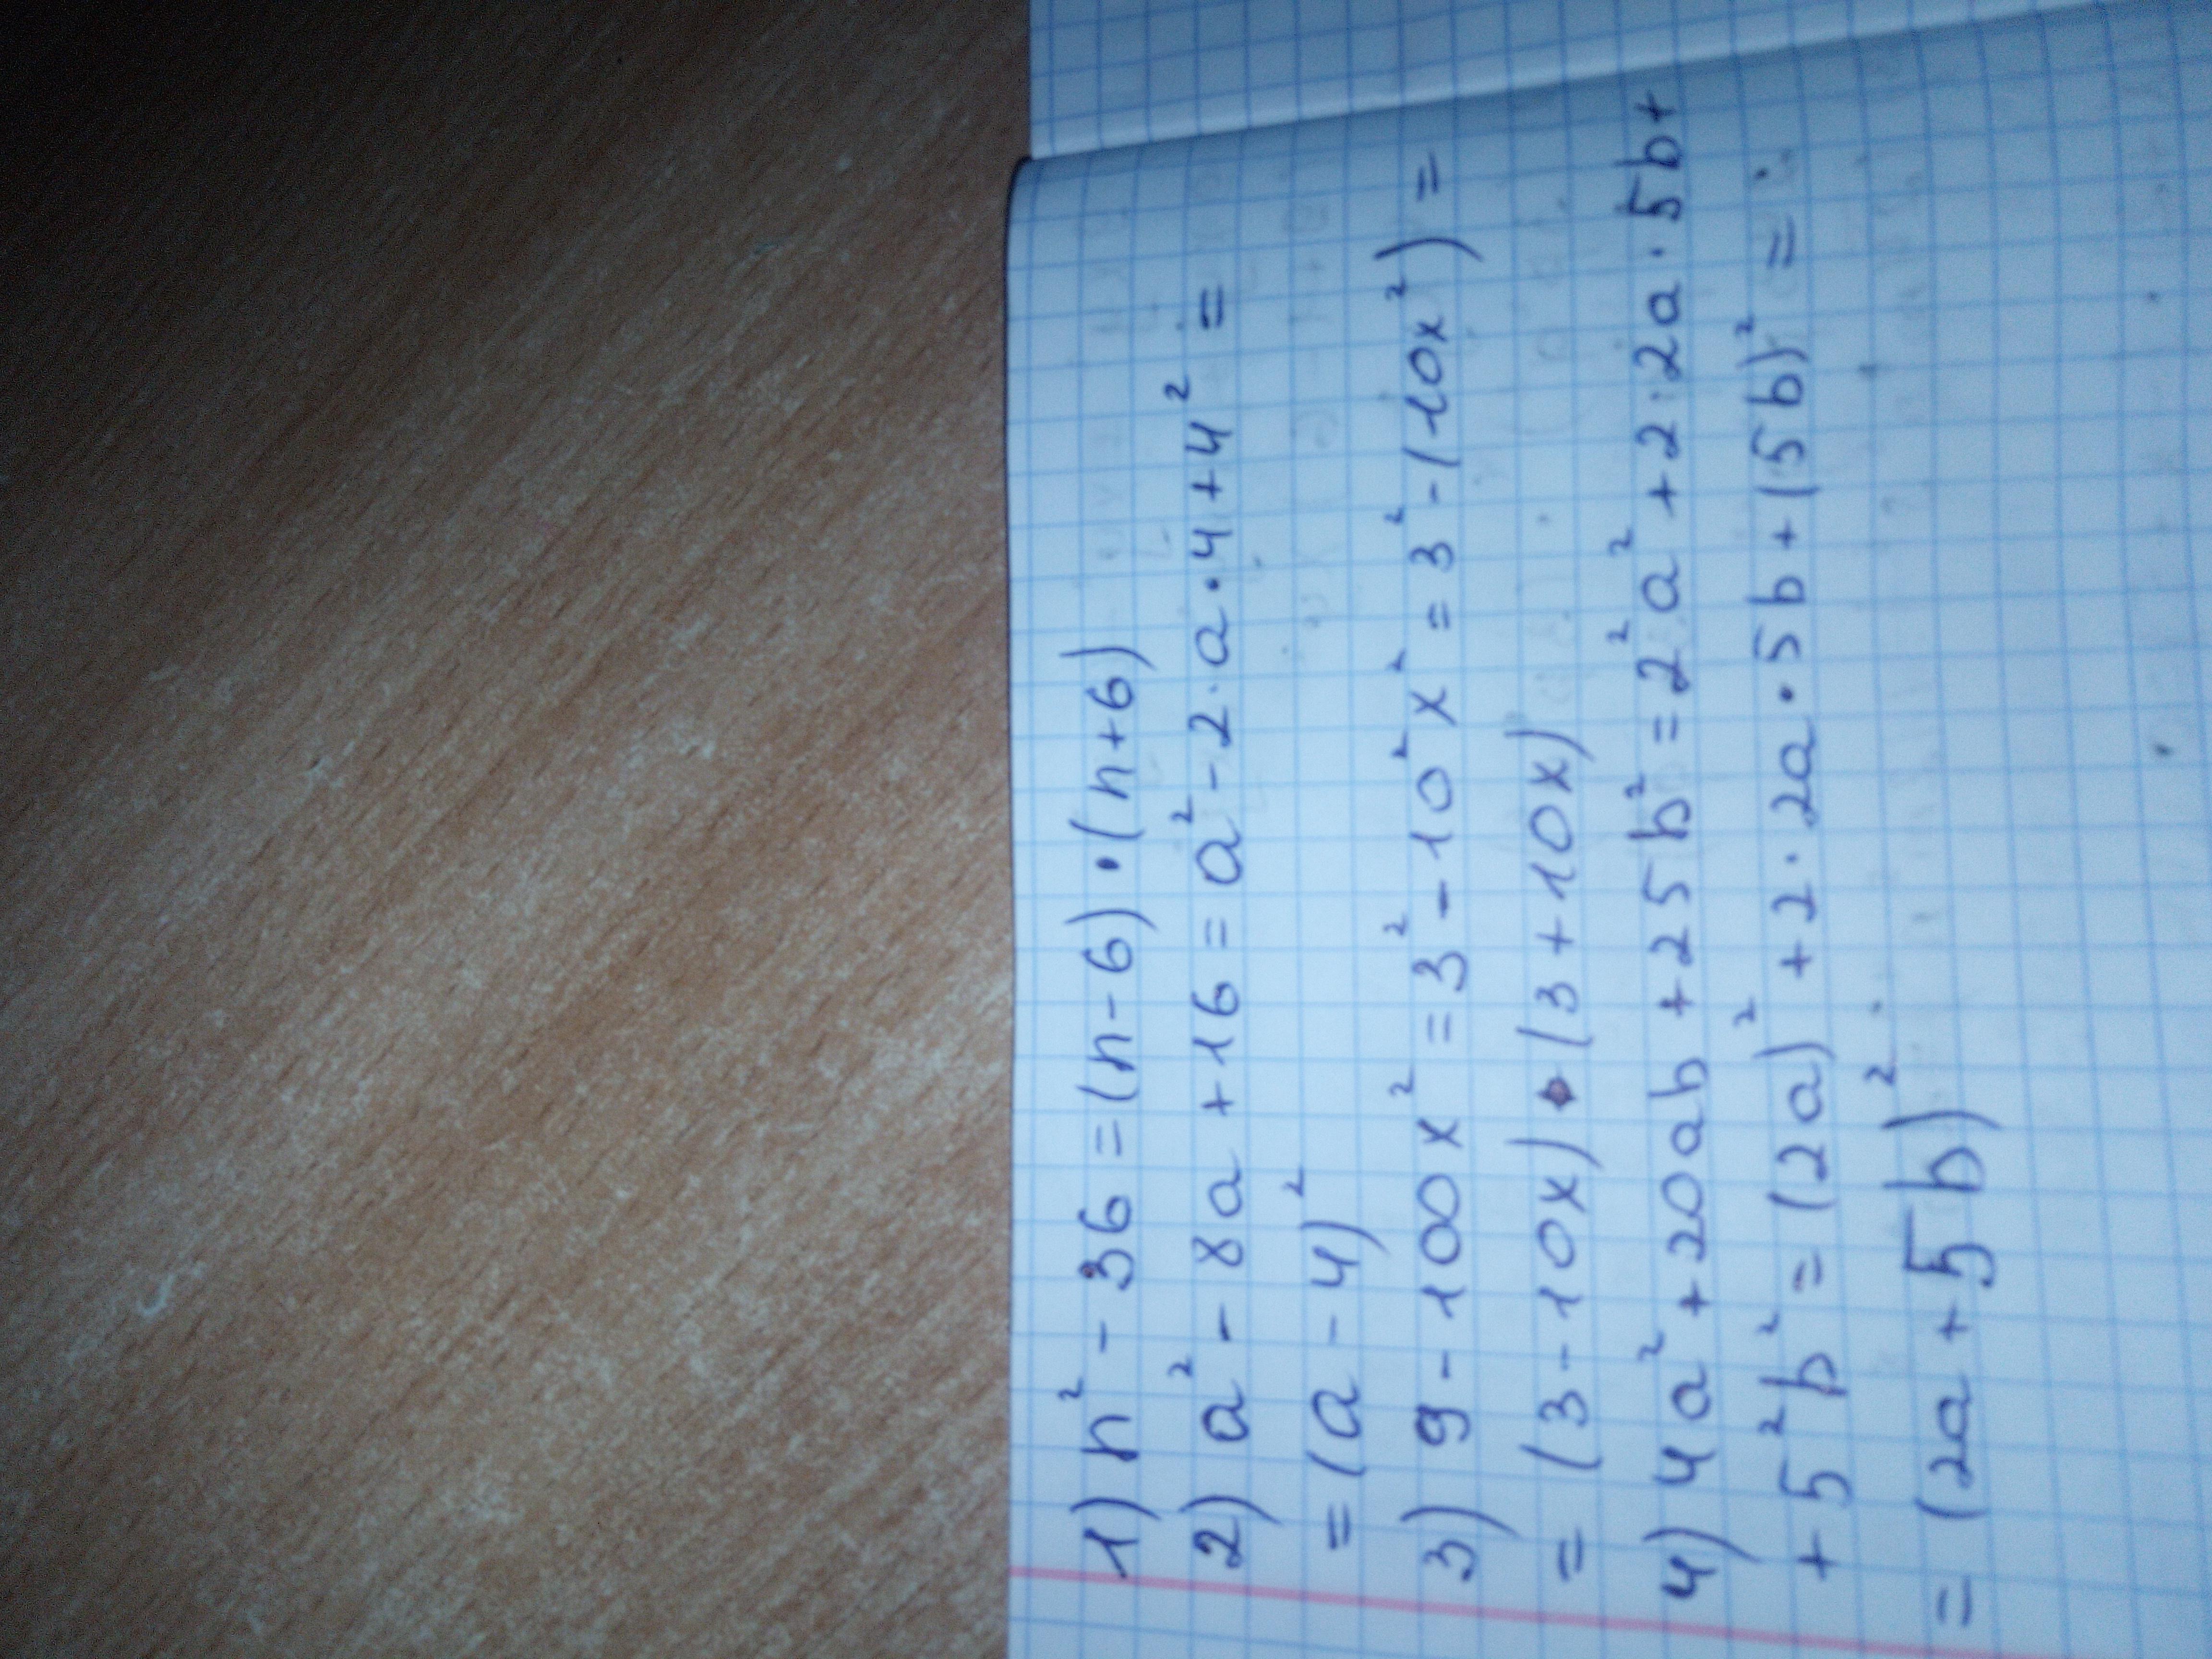 1) n² - 36 = (n - 6) • (n + 6)
2) a² - 8a + 16 = a² - 2 · a • 4 + 4² =
= (a - 4)²
3) 9 - 100x² = 3² - 10²x² = 3² - (10x²) =
= (3 - 10x) • (3 + 10x)
4) 4a² + 20ab + 25b² = 2²a² + 2 · 2a · 5b +
+ 5²b² = (2a)² + 2 · 2a • 5b + (5b)² =
= (2a + 5b)²